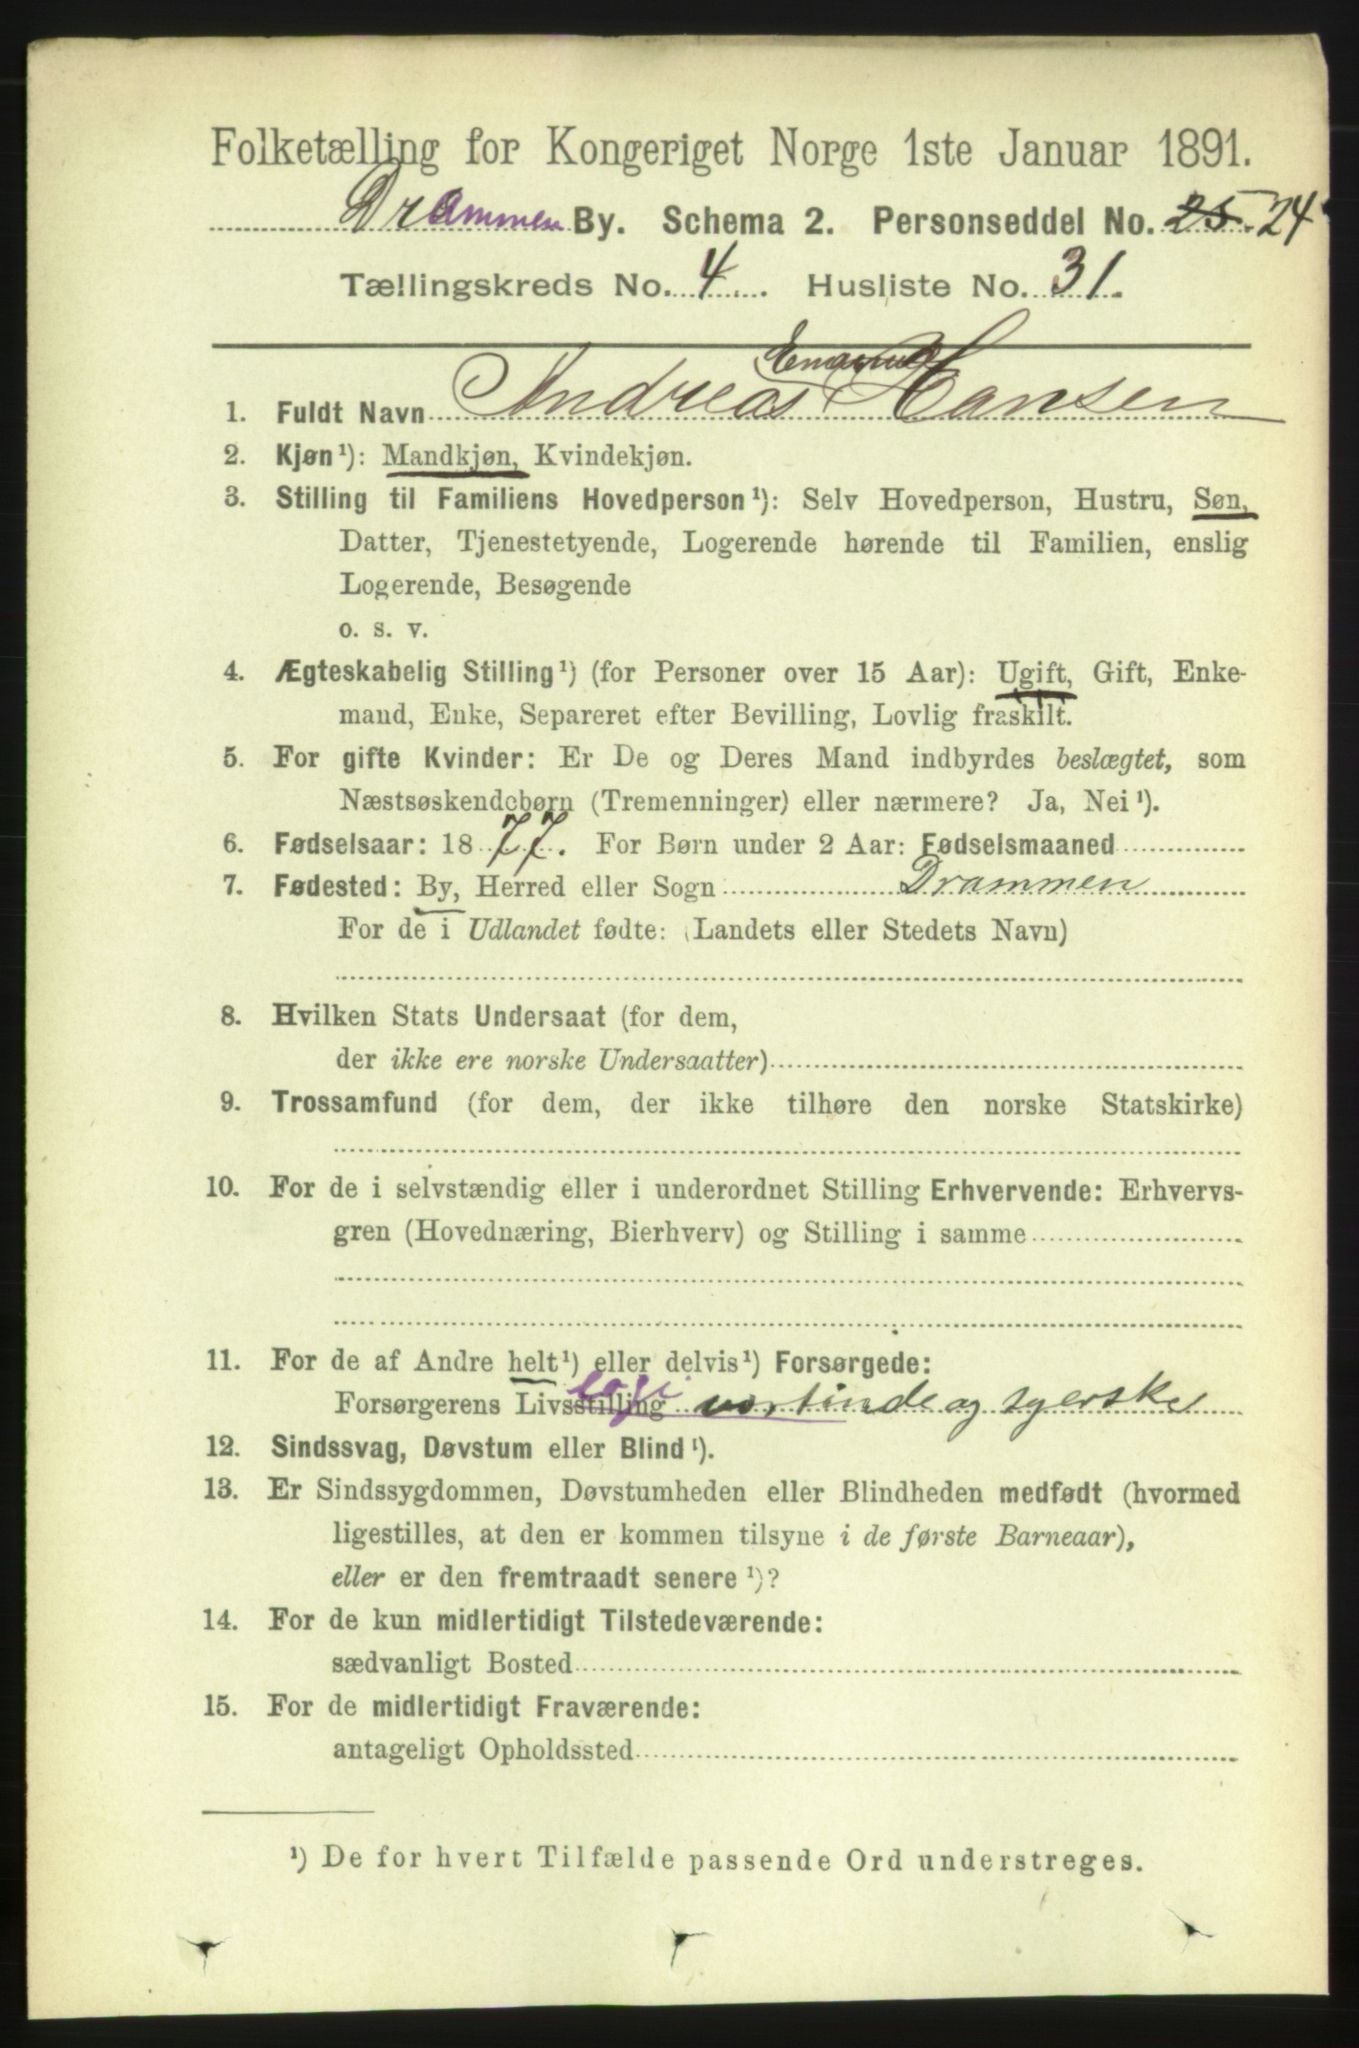 Folketælling for Kongeriget Norge 1ste Januar 1891.
Drammen By. Schema 2. Personseddel No. 25. 24
Tællingskreds No. 4. Husliste No. 31.
Emanuel
1. Fuldt Navn Andreas Hansen
2. Kjøn¹): Mandkjøn, Kvindekjøn.
3. Stilling til Familiens Hovedperson¹): Selv Hovedperson, Hustru, Søn,
Datter, Tjenestetyende, Logerende hørende til Familien, enslig
Logerende, Besøgende
o. s. v.
4. Ægteskabelig Stilling¹) (for Personer over 15 Aar): Ugift, Gift, Enke-
mand, Enke, Separeret efter Bevilling, Lovlig fraskilt.
5. For gifte Kvinder: Er De og Deres Mand indbyrdes beslægtet, som
Næstsøskendebørn (Tremenninger) eller nærmere? Ja, Nei¹).
6. Fødselsaar: 1877. For Børn under 2 Aar: Fødselsmaaned
7. Fødested: By, Herred eller Sogn Drammen
For de i Udlandet fødte: (Landets eller Stedets Navn)
8. Hvilken Stats Undersaat (for dem,
der ikke ere norske Undersaatter)
9. Trossamfund (for dem, der ikke tilhøre den norske Statskirke)
10. For de i selvstændig eller i underordnet Stilling Erhvervende: Erhvervs-
gren (Hovednæring, Bierhverv) og Stilling i samme
11. For de af Andre helt¹) eller delvis¹) Forsørgede:
Forsørgerens Livsstilling logi vertinde og syerske
12. Sindssvag, Døvstum eller Blind¹).
13. Er Sindssygdommen, Døvstumheden eller Blindheden medfødt (hvormed
ligestilles, at den er kommen tilsyne i de første Barneaar),
eller er den fremtraadt senere¹)?
14. For de kun midlertidigt Tilstedeværende:
sædvanligt Bosted
15. For de midlertidigt Fraværende:
antageligt Opholdssted
¹) De for hvert Tilfælde passende Ord understreges.